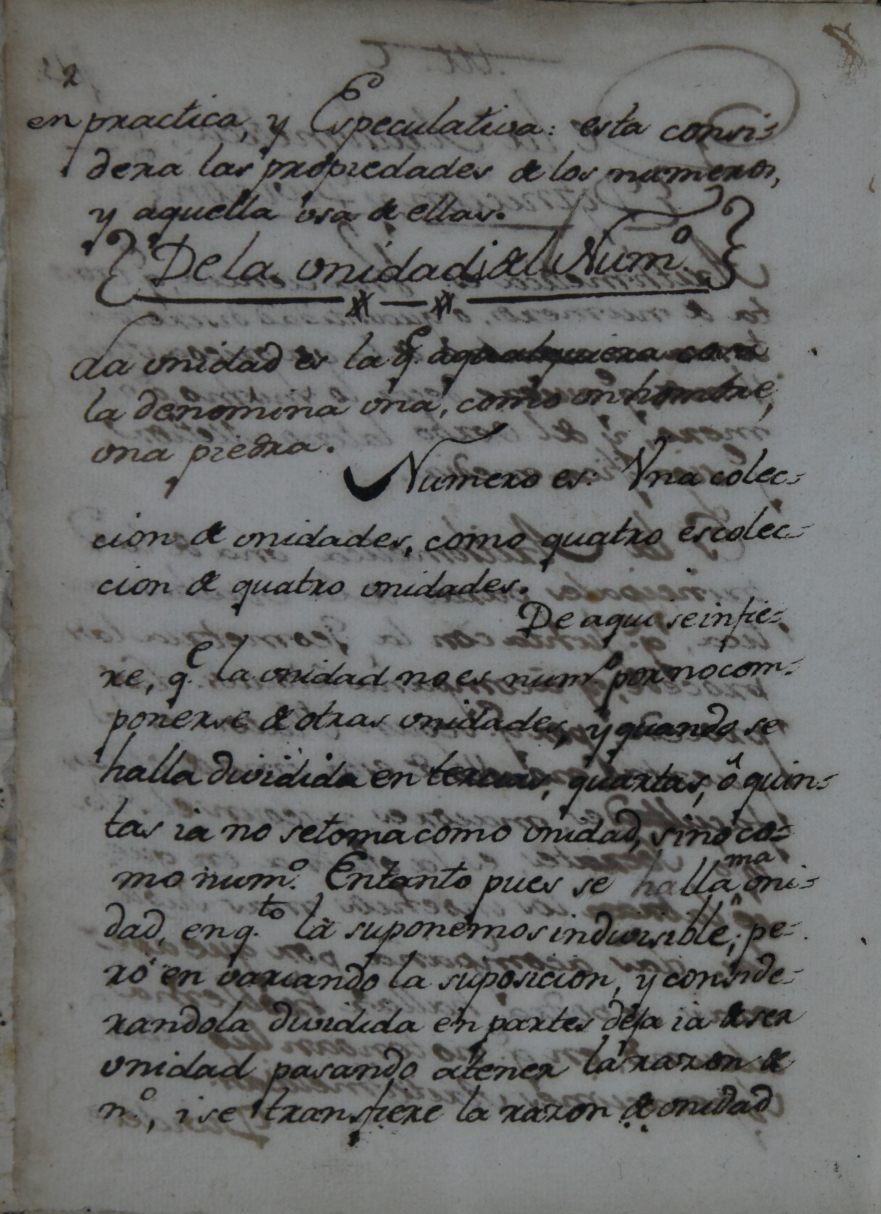 2
en practica, y Especulativa: esta consi-
dera las propiedades de los numeros,
y aquella usa de ellas.
De la vnidad, i del Num.º
La vnidad es la q.e a qualquiera cosa
la denomina vna, como vn hombre,
vna piedra.
Numero es: Vna colec-
cion de vnidades, como quatro es colec-
cion de quatro vnidades.
De aqui se infie-
re, q.e la vnidad no es num.º por no com-
ponerse de otras vnidades, y quando se
halla dividida en tercias, quartas, ô quin-
tas ia no se toma como vnidad, sino co-
mo num.º Entanto pues se llama vni-
dad, en q.to la suponemos indivisible; pe-
ro en variando la suposicion, y conside-
randola dividida en partes deja ia de ser
vnidad pasando a tener la razon de
n.º, i se transfiere la razon de vnidad